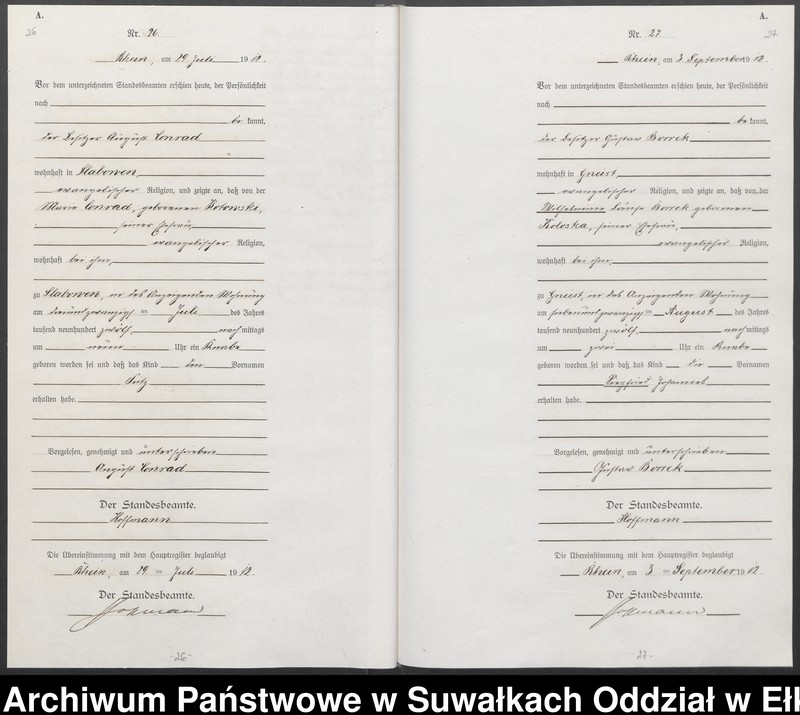 A.
26
Nr. 26.
Rhein, am 29 Juli 1912.
Vor dem unterzeichneten Standesbeamten erschien heute, der Persönlichkeit
nach
be kannt,
der Besitzer August Conrad
wohnhaft in Stabowen,
evangelischer Religion, und zeigte an, daß von der
Marie Conrad, geborenen Kolowski,
seiner Ehefrau,
evangelischer Religion,
wohnhaft bei ihm,
zu Stabowen, in des Anzeigenden Wohnung
am dreiundzwanzig ten Juli des Jahres
tausend neunhundert zwölf nachmittags
um neun Uhr ein Knabe
geboren worden sei und daß das Kind den Vornamen
Fritz
erhalten habe.
Vorgelesen, genehmigt und unterschrieben
August Conrad
Der Standesbeamte.
Hoffmann
Die Übereinstimmung mit dem Hauptregister beglaubigt
Rhein, am 29. ten Juli 1912.
Der Standesbeamte.
Hoffmann
-26-
A.
27
Nr. 27
Rhein, am 3 September 1912.
Vor dem unterzeichneten Standesbeamten erschien heute, der Persönlichkeit
nach
be kannt,
der Besitzer Gustav Borrek
wohnhaft in Gneist
evangelischer Religion, und zeigte an, daß von der
Wilhelmine Louise Borrek geborenen
Koloska, seiner Ehefrau,
evangelischer Religion,
wohnhaft bei ihm,
zu Gneist, in des Anzeigenden Wohnung
am siebenundzwanzig ten August des Jahres
tausend neunhundert zwölf, nachmittags
um zwei Uhr ein Knabe
geboren worden sei und daß das Kind die Vornamen
Siegfried Johannes
erhalten habe.
Vorgelesen, genehmigt und unterschrieben
Gustav Borrek
Der Standesbeamte.
Hoffmann
Die Übereinstimmung mit dem Hauptregister beglaubigt
Rhein, am 3 ten September 1912.
Der Standesbeamte.
Hoffmann
-27-
Archiwum Państwowe w Suwałkach Oddział w Eł